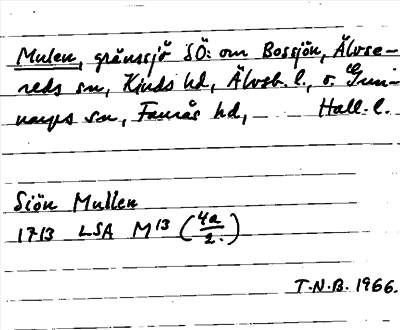 Mulen, gränssjö SÖ: om Bossjön, Älvse-
reds sn, Kinds hd, Älvsb. l., o. Gun-
narps sn, Faurås hd, Hall. l.
Siön Mullen
1713 LSA M13 (4a/2.)
T.N.B. 1966.